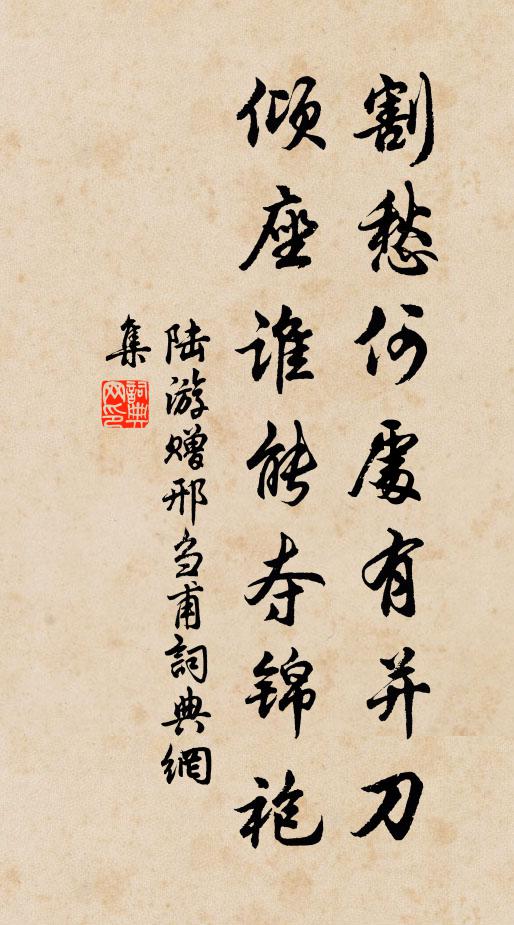 割愁何處有并刀
倾座谁能夺锦袍
陆游赠邢刍甫詞典網
集
詞典網印